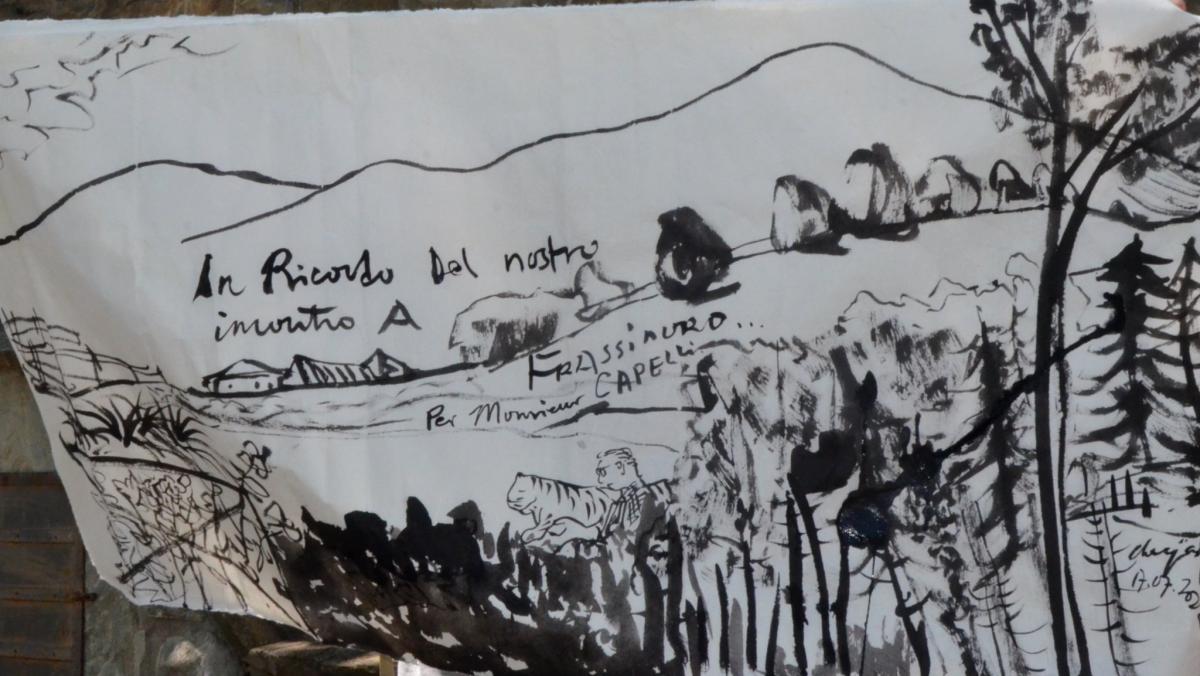 In Ricordo Del nostro
incontro A
FRASSINORO...
Per Monsieur CAPELLI
17.07.20